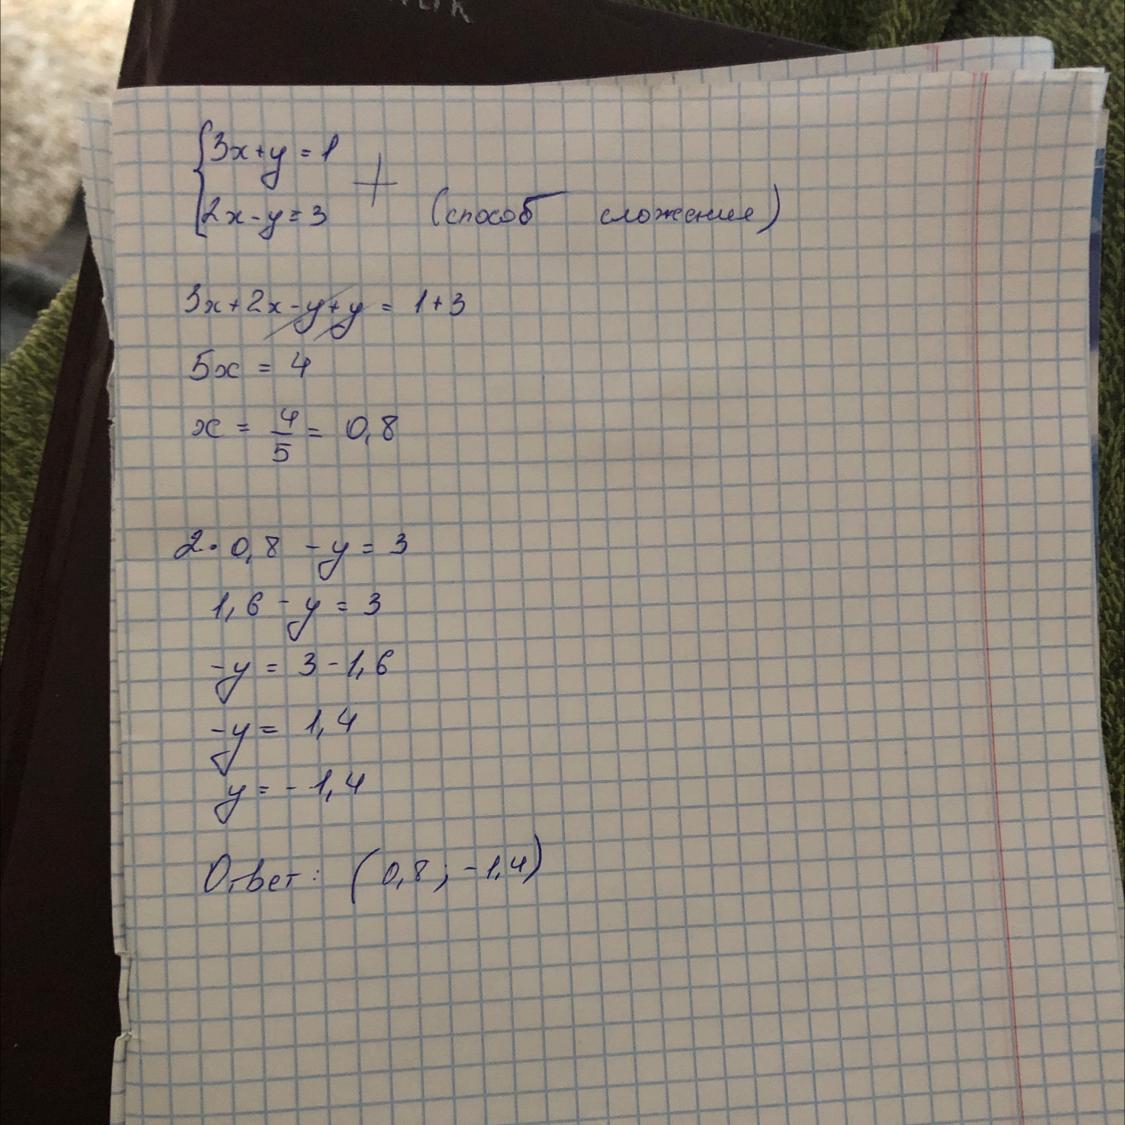 3x+y = 1
+
2x-y = 3 (способ сложение)
3x+2x-y+y = 1+3
5x = 4
x = 4/5 = 0,8
2·0,8 -y = 3
1,6 -y = 3
-y = 3-1,6
-y = 1,4
y = -1,4
Ответ: (0,8; -1,4)